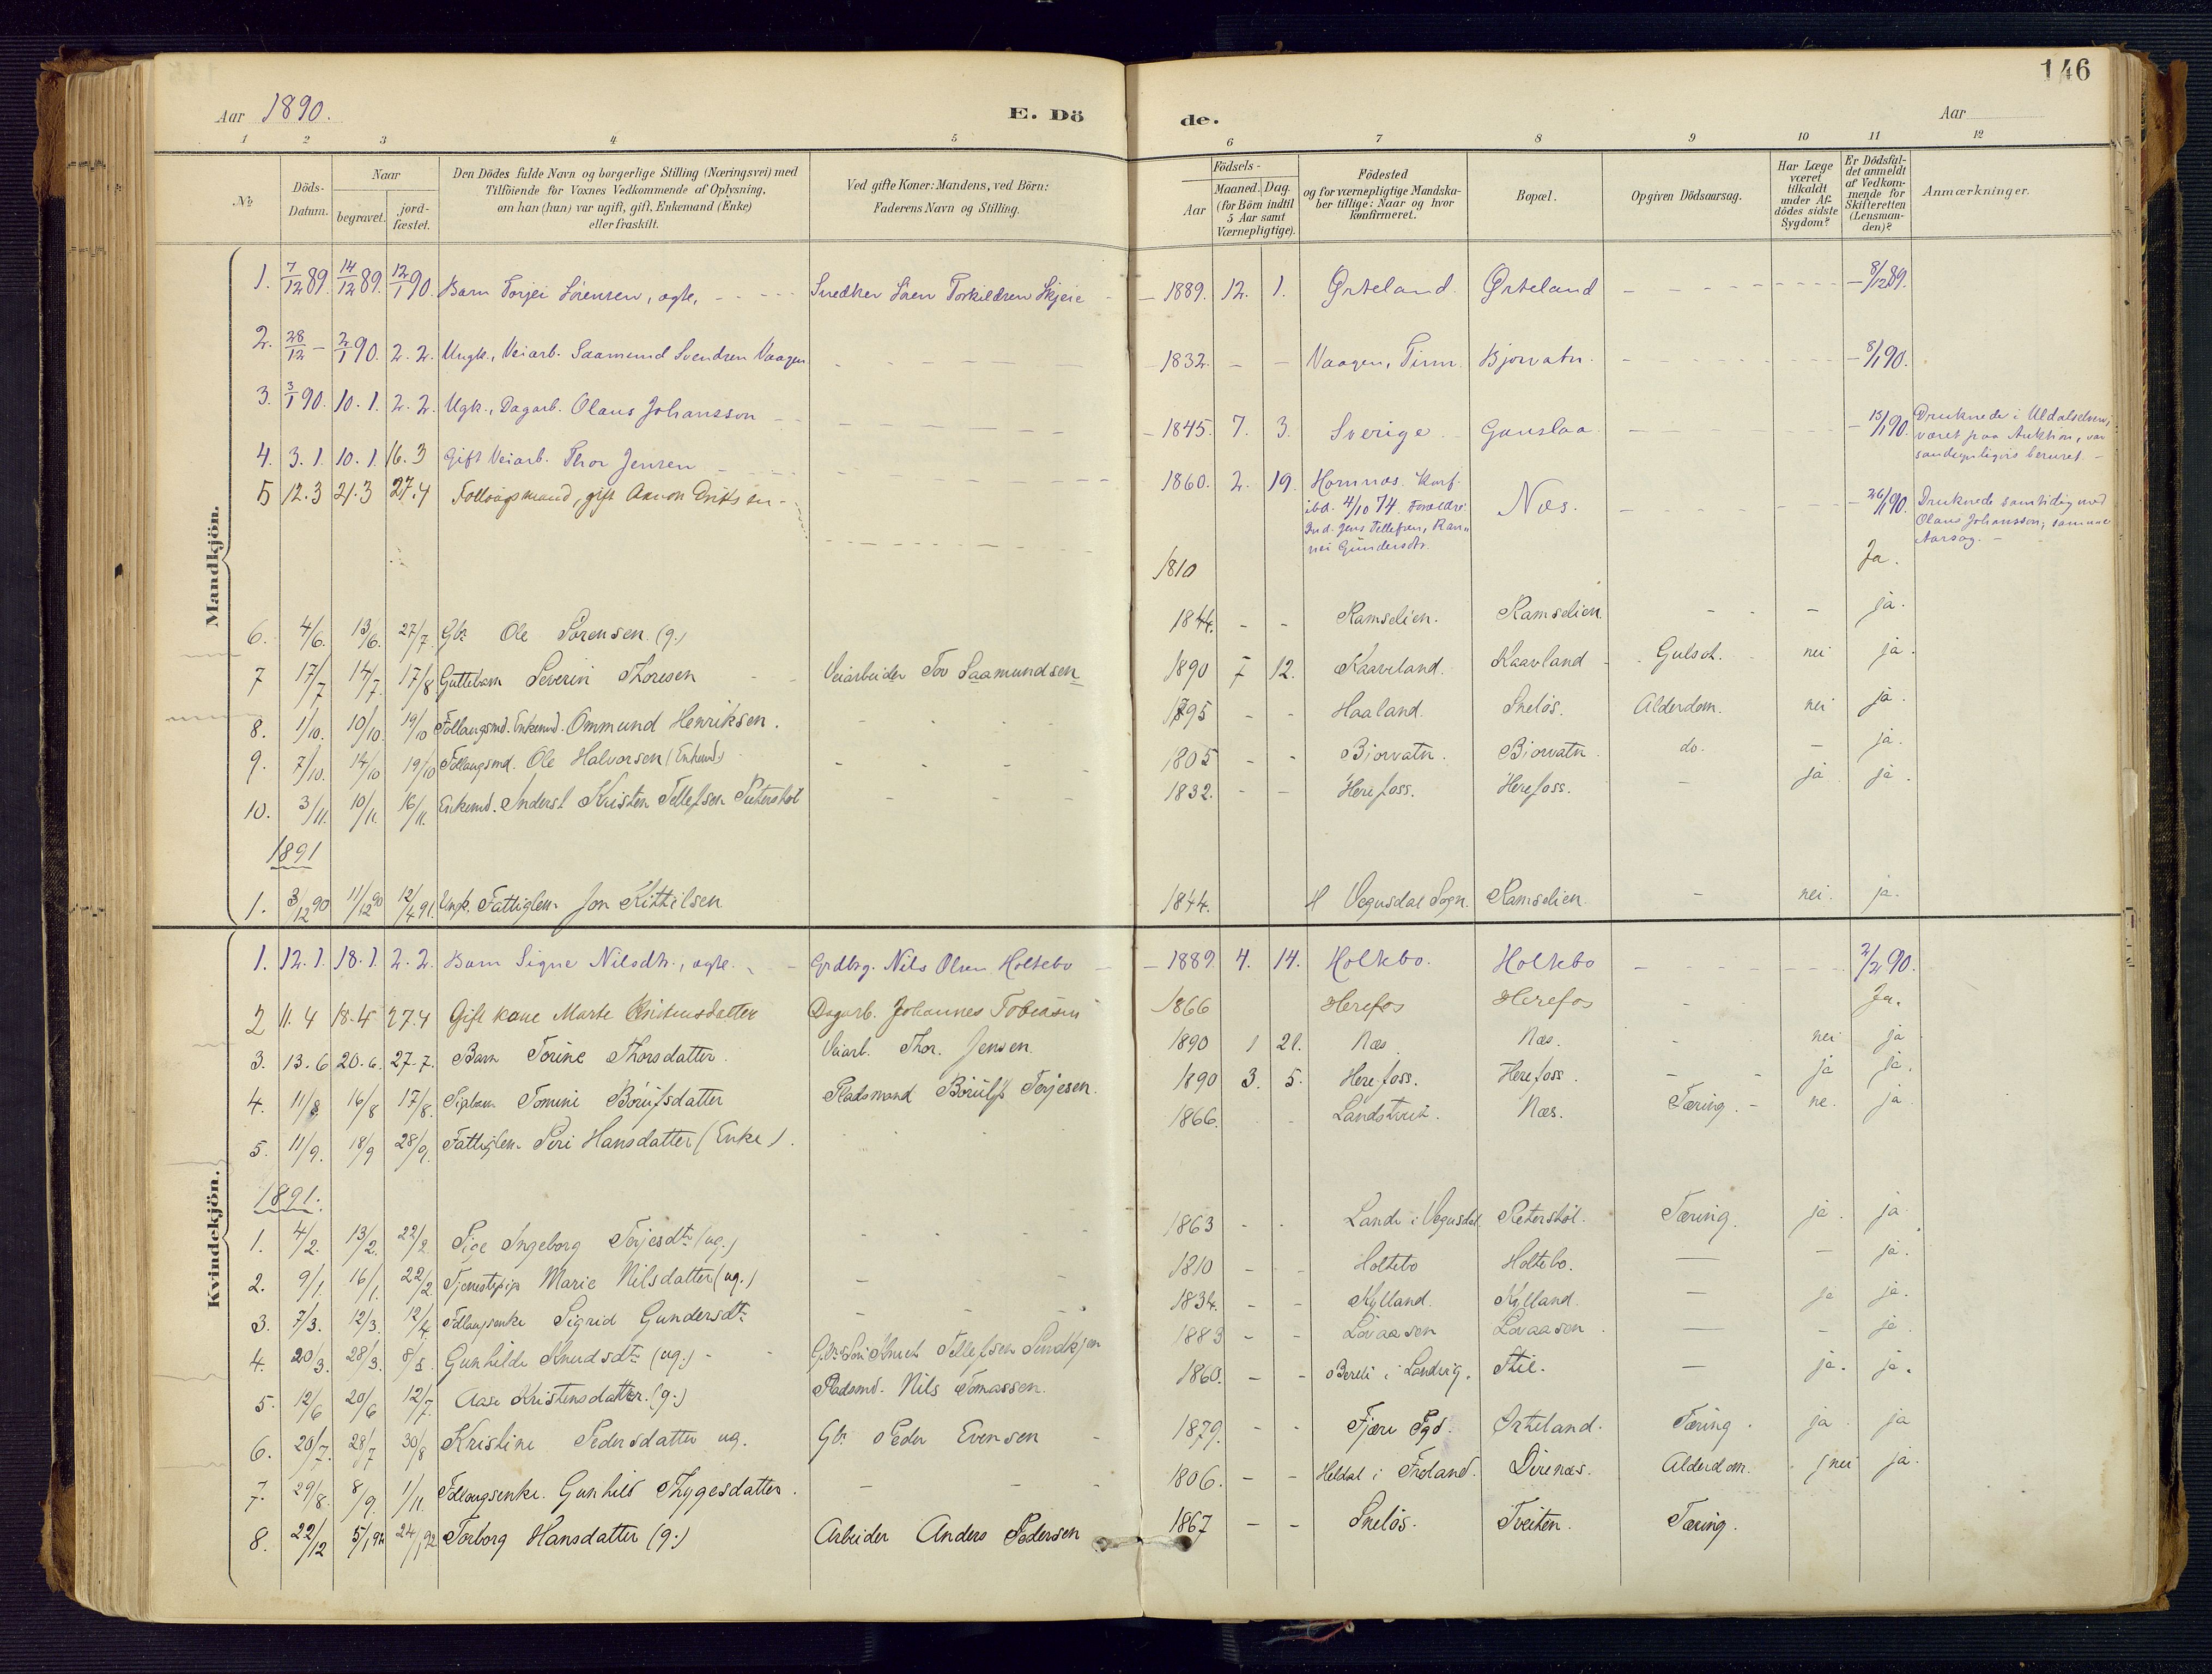 146
Aar 1890.
E. Dö
de.
Aar
1 2 3 4 5 6 7 8 9 10 11 12
No
Döds-
Datum.
Naar
begravet.
jord-
fæstet.
Den Dödes fulde Navn og borgerlige Stilling (Næringsvei) med
Tilföiende for Voxnes Vedkommende af Oplysning,
om han (hun) var ugift, gift, Enkemand (Enke)
eller fraskilt.
Ved gifte Koner: Mandens, ved Börn:
Faderens Navn og Stilling.
Födsels-
Aar
Maaned. Dag.
(for Börn indtil
5 Aar samt
Værnepligtige).
Födested
og for værnepligtige Mandska-
ber tillige: Naar og hvor
Konfirmeret.
Bopæl.
Opgiven Dödsaarsag.
Har Læge
været
tilkaldt
under Af-
dödes sidste
Sygdom?
Er Dödsfal-
det anmeldt
af Vedkom-
mende for
Skifteretten
(Lensman-
den)?
Anmærkninger.
Mandkjön.
1. 7/12 89. 14/12 89. 12/1 90. Barn Torjei Sörensen, ægte, Snedker Sören Torkildsen Skjeie 1889. 12. 1. Örteland. Örteland 8/12 89.
2. 28/12 – 2/1 90. 2. 2. Ungk., Veiarb. Saamund Svendsen Vaagen 1832. Vaagen, Tinn. Bjorvatn. 8/1 90.
3. 3/1 90. 10. 1. 2. 2. Ugk., Dagarb. Olaus Johansson 1845. 7. 3. Sverige. Gauslaa 13/1 90. Druknede i Uldalselven,
været paa Auktion, var
sandsynligvis beruset. –
4. 3. 1. 10. 1. 16. 3 Gift Veiarb. Thor Jensen 1860. 2. 19. Hornnæs. Konf.
ibd. 4/10 74. Forældre:
Ind. Jens Tellefsen, Ran-
nei Gundersdtr. Næs. 26/1 90. Druknede samtidig med
Olaus Johansson; samme
Aarsag. –
5 12.3 21.3 27.4 Follaugsmand, gift Aanon Eriksen 1810 Ja.
6. 4/6. 13/6. 27/7. Gbr. Ole Sörensen (g.) 1844. Ramselien. Ramselien. ja.
7 17/7 14/7. 17/8 Guttebarn Severin Thoresen Veiarbeider Tov Saamundsen 1890 7 12. Kaavland. Kaavland Gulsot. nei ja.
8. 1/10. 10/10. 19/10 Follaugsmd. Enkemd. Ommund Henriksen. 1795 Haaland. Snelös. Alderdom. nei ja.
9. 7/10. 14/10 19/10 Follaugsmd. Ole Halvorsen (Enkemd) 1805 Bjorvatn. Bjorvatn do. – ja.
10. 3/11. 10/11. 16/11. Enkemd. Inderst Kristen Tellefsen Retterstöl 1832. Herefoss. Herefoss. – ja ja.
1891
1. 3/12 90 11/12 90 12/4 91. Ungk. Fattiglem Jon Kittilsen 1844. Vegusdal Sogn. Ramselien. – nei. ja.
Kvindekjön.
1. 12. 1. 18. 1. 2. 2. Barn Signe Nilsdtr., ægte. Grdbrg. Nils Olsen Holtebo 1889. 4. 14. Holtebo. Holtebo 2/2 90.
2 11. 4 18. 4 27. 4 Gift kone Marte Kristensdatter Dagarb. Johannes Tobiasen 1866 Herefos Herefos Ja.
3. 13. 6 20. 6. 27. 7. Barn Torine Thorsdatter. Veiarb. Thor. Jensen. 1890 1 21. Næs. Næs. nei ja
4. 11/8 16/8 17/8. Pigebarn Tomine Börulfsdatter Pladsmand Börulfs Terjesen. 1890 3. 5. Herefoss. Herefoss. – ja ja.
5. 11/9. 18/9 28/9. Fattiglem Siri Hansdatter (Enke). 1866. Landsverk. Næs. Tæring. – ne. ja
1891.
1. 4/2. 13/2. 22/2. Pige Ingeborg Terjesdtr (ug.) 1863 Lande i Vegusdal. Retterstöl. Tæring. ja. ja.
2. 9/1. 16/1. 22/2. Tjenestepige Marie Nilsdatter (ug.) 1810 Holtebo Holtebo. – – ja.
3. 7/3. 12/3. 12/4. Follaugsenke Sigrid Gundersdtr 1834. Kylland. Kylland. – ja ja.
4. 20/3. 28/3. 8/5. Gunhilde Knudsdtr (ug.) Gbr Sön Knud Tellefsen 1883 Lövaasen Lövaasen – – ja.
5. 12/6 20/6 12/7. Aase Kristensdatter. (g.) Pladsmd. Nils Tomassen. 1860. i Landvig. Stie. – ja. ja.
6. 20/7. 28/7 30/8 Kristine Pedersdatter ug. Gbr. Peder Evensen 1879. Fjære Pgd. Örteland. Tæring. ja ja
7. 29/8. 8/9. 1/11. Follaugsenke. Gunhild Thygesdatter. 1806. Heldal i Froland. Direnæs. Alderdom. nei ja.
8. 22/12 5/1 92 24/1 92 Torborg Hansdatter (g.) Arbeider Anders Pedersen 1867 Snelös. Tveiten. Tæring.